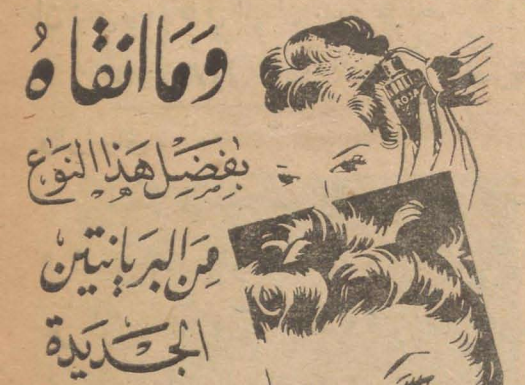 وَمَا انقاهُ
بفضل هذا النوع
من البريانتين
الجديدة
ROJA